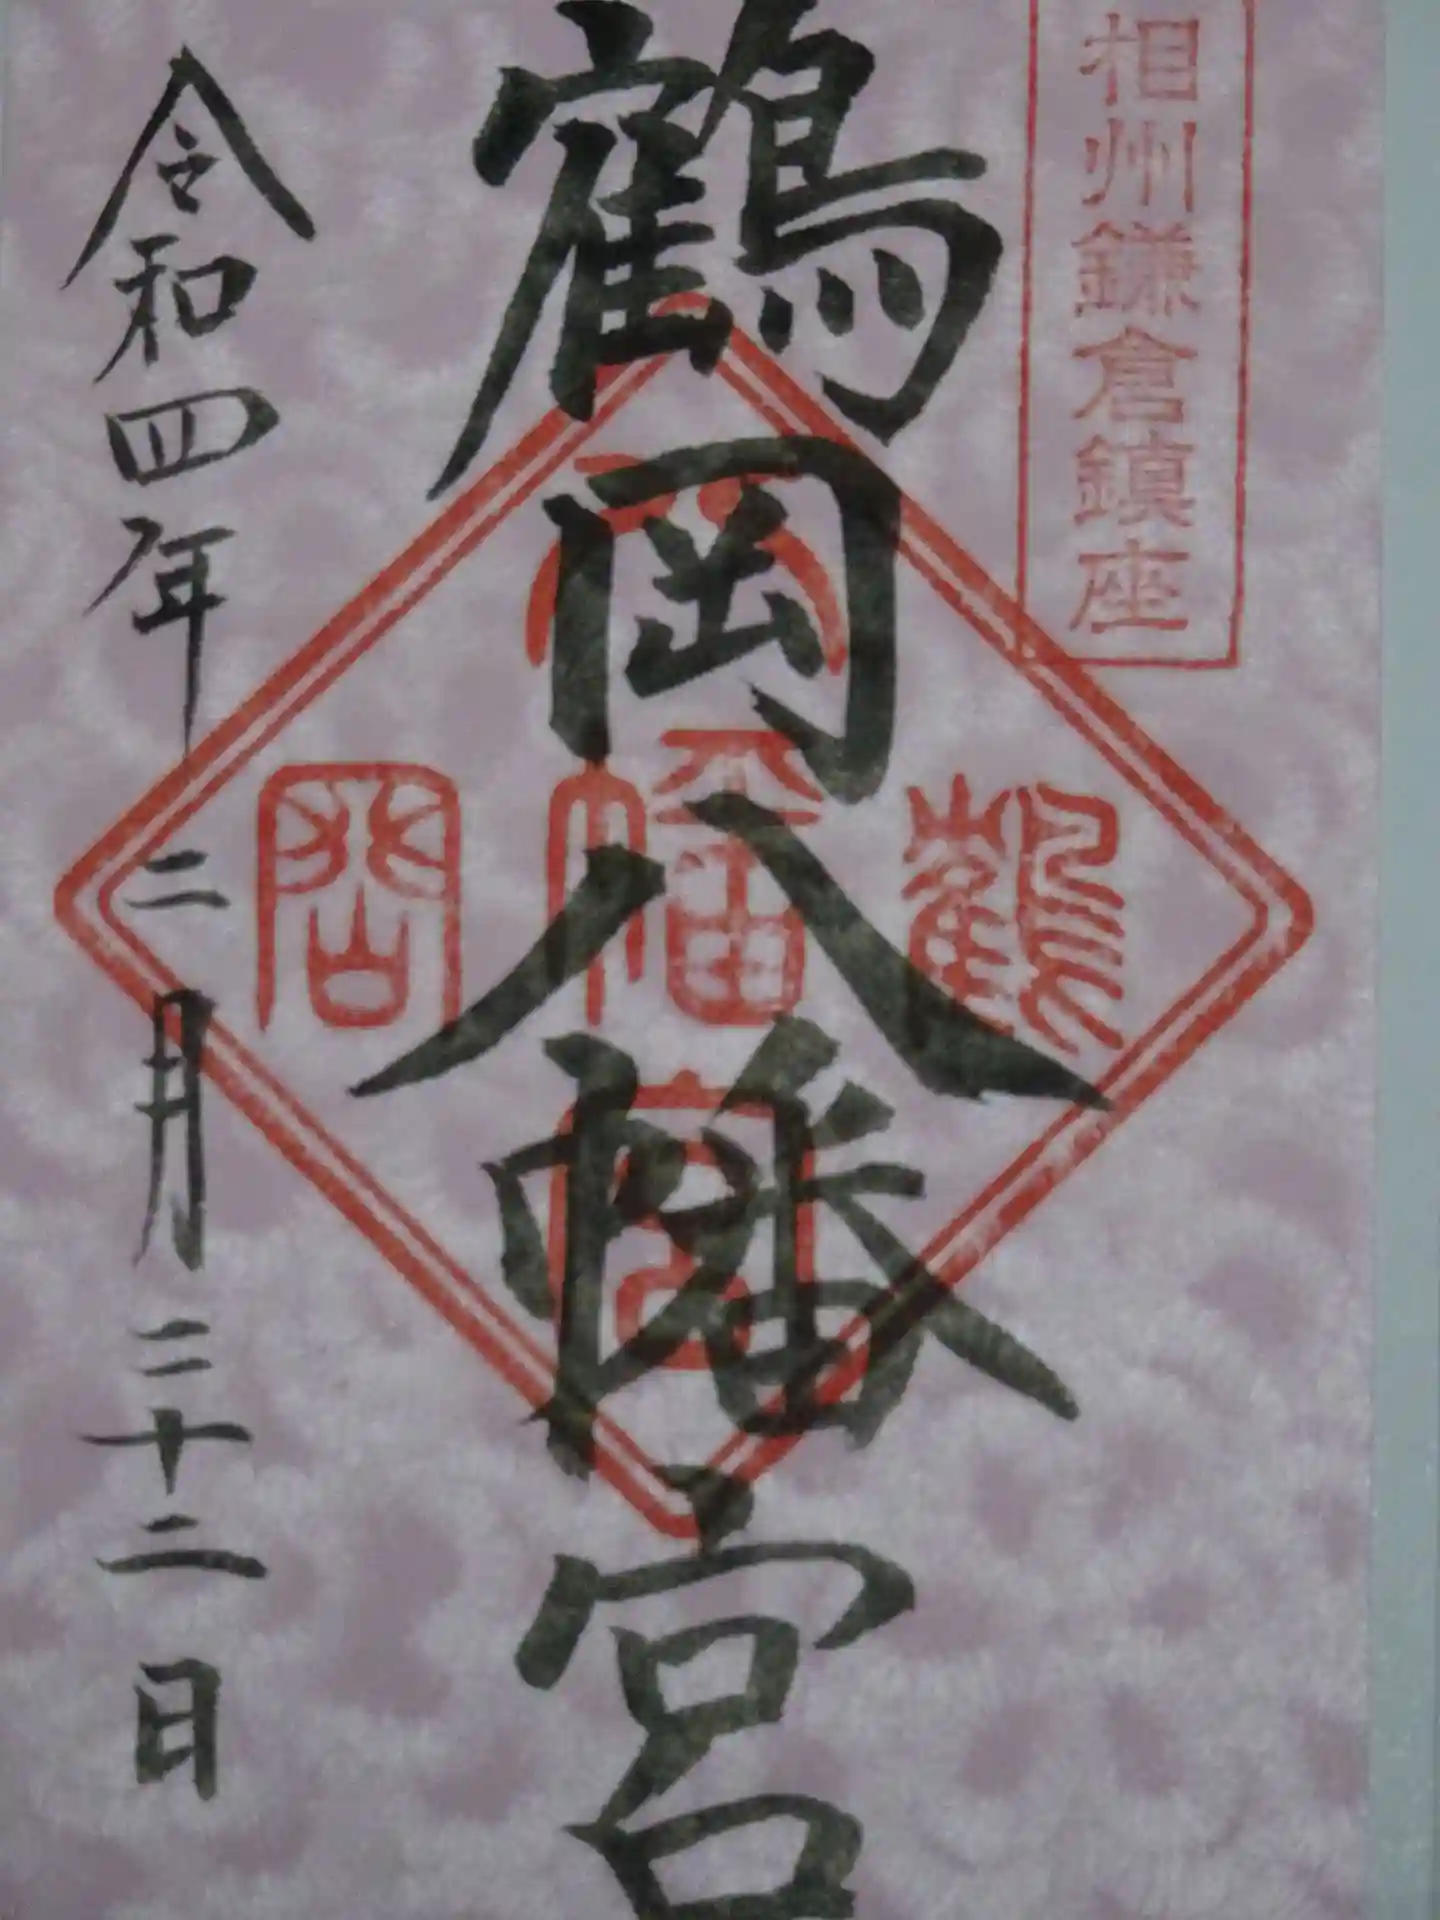 相州鎌倉鎮座
鶴岡八幡宮
鶴 八幡宮 岡
令和四年二月二十二日